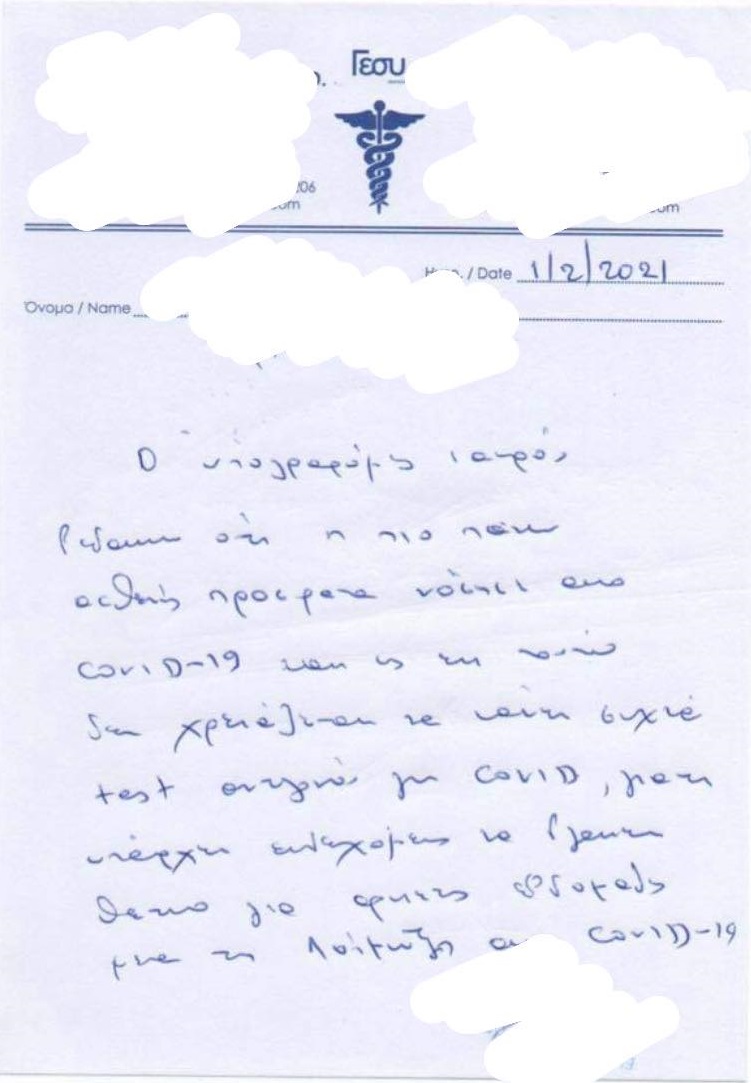 Γεσυ
206
om
om
/ Date 1/2/2021
Όνομα / Name
Ο υπογραφόμενος ιατρός
βεβαιώ ότι η πιο πάνω
ασθενής πρόσφατα νόσησε απο
COVID-19 και ως εκ τούτου
δεν χρειάζεται να κάνει συχνά
test αντιγόνου για COVID, γιατι
υπάρχει ενδεχόμενο να βγαίνει
θετικό για αρκετές εβδομάδες
μετα τη λοίμωξη απο COVID-19